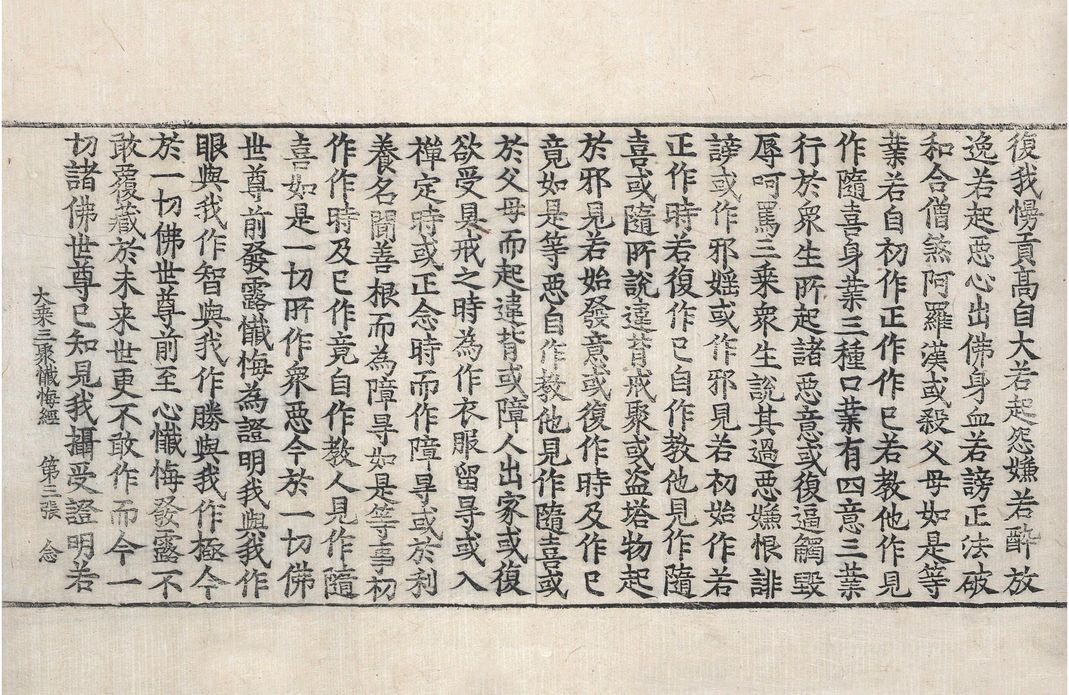 復我慢貢高自大若起怨嫌若醉放
逸若起惡心出佛身血若謗正法破
和合僧煞阿羅漢或殺父母如是等
業若自初作正作作已若教他作見
作隨喜身業三種口業有四意三業
行於衆生所起諸惡意或復逼觸毀
辱呵罵三乘衆生說其過惡嫌恨誹
謗或作邪婬或作邪見若初始作若
正作時若復作已自作教他見作隨
喜或隨所說違背戒聚或盜塔物起
於邪見若始發意或復作時及作已
竟如是等惡自作教他見作隨喜或
於父母而起違背或障人出家或復
欲受具戒之時為作衣服留㝵或入
禪定時或正念時而作障㝵或於利
養名聞善根而為障㝵如是等事初
作作時及已作竟自作教人見作隨
喜如是一切所作衆惡今於一切佛
世尊前發露懺悔為證明我與我作
眼與我作智與我作勝與我作極今
於一切佛世尊前至心懺悔發露不
敢覆藏於未来世更不敢作而今一
切諸佛世尊已知見我攝受證明若
大乘三聚懺悔經 第三張 念